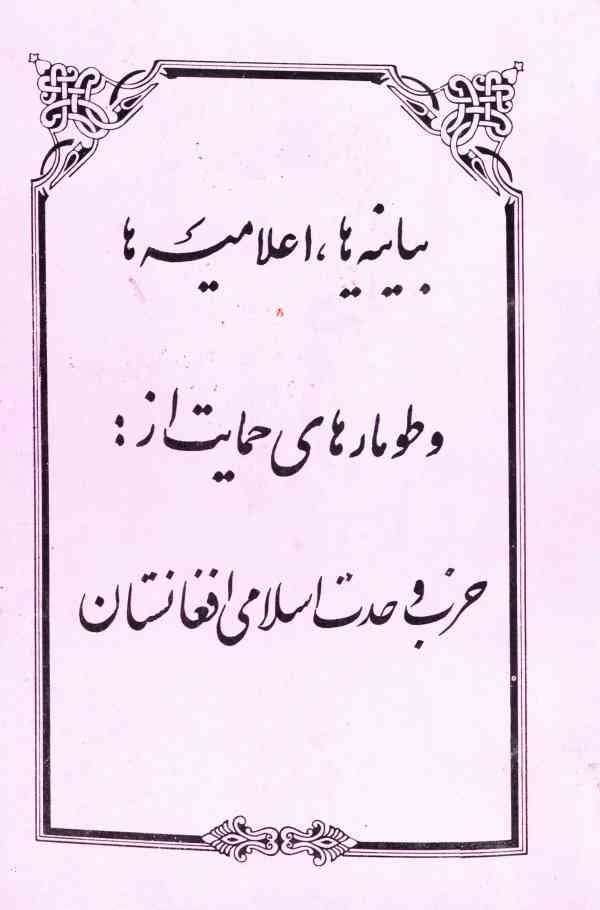 بیانیه ها، اعلامیه ها
و طومارهای حمایت از :
حزب وحدت اسلامی افغانستان